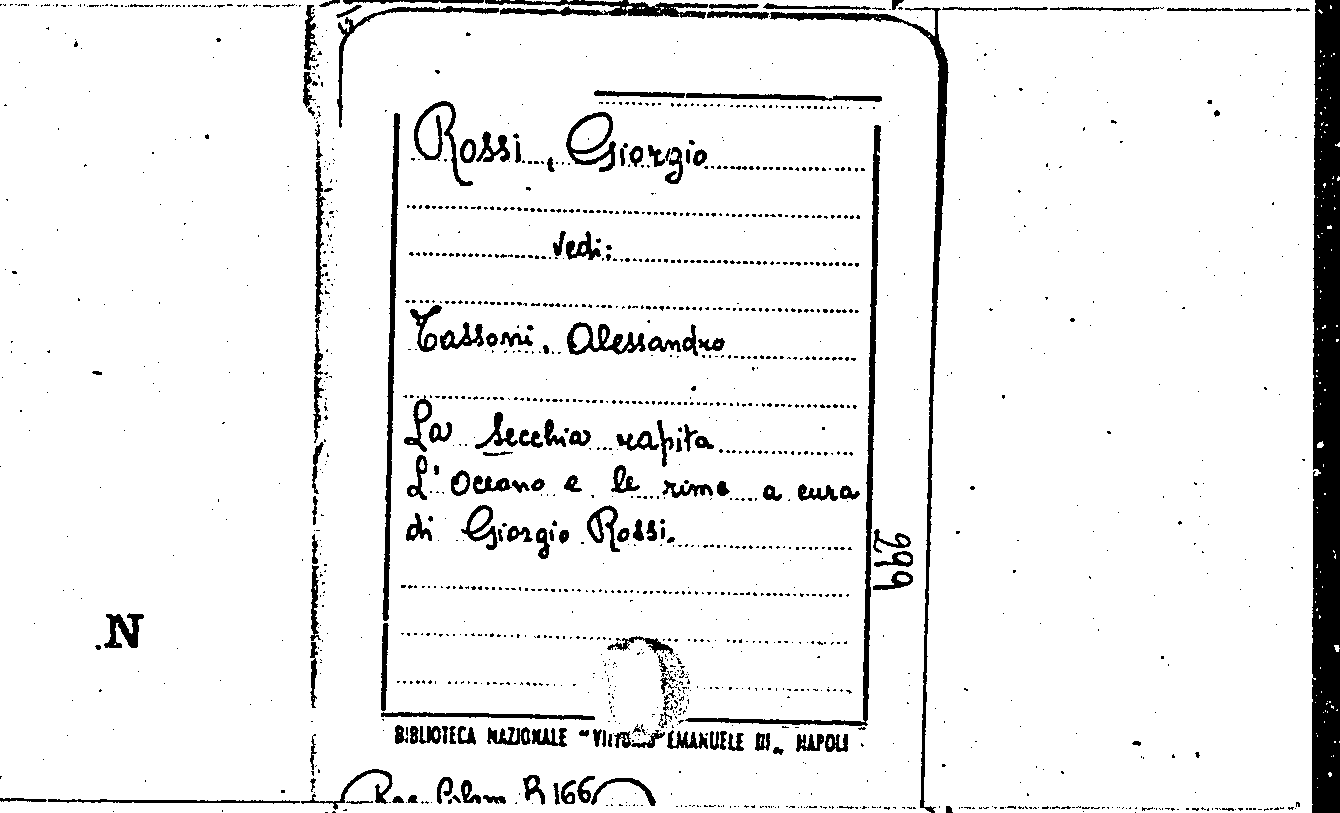 Rossi, Giorgio
vedi:
Tassoni, Alessandro
La Secchia rapita
L'Oceano e le rime a cura
di Giorgio Rossi.
299
N
BIBLIOTECA NAZIONALE "VITTORIO EMANUELE III„ NAPOLI
B 166